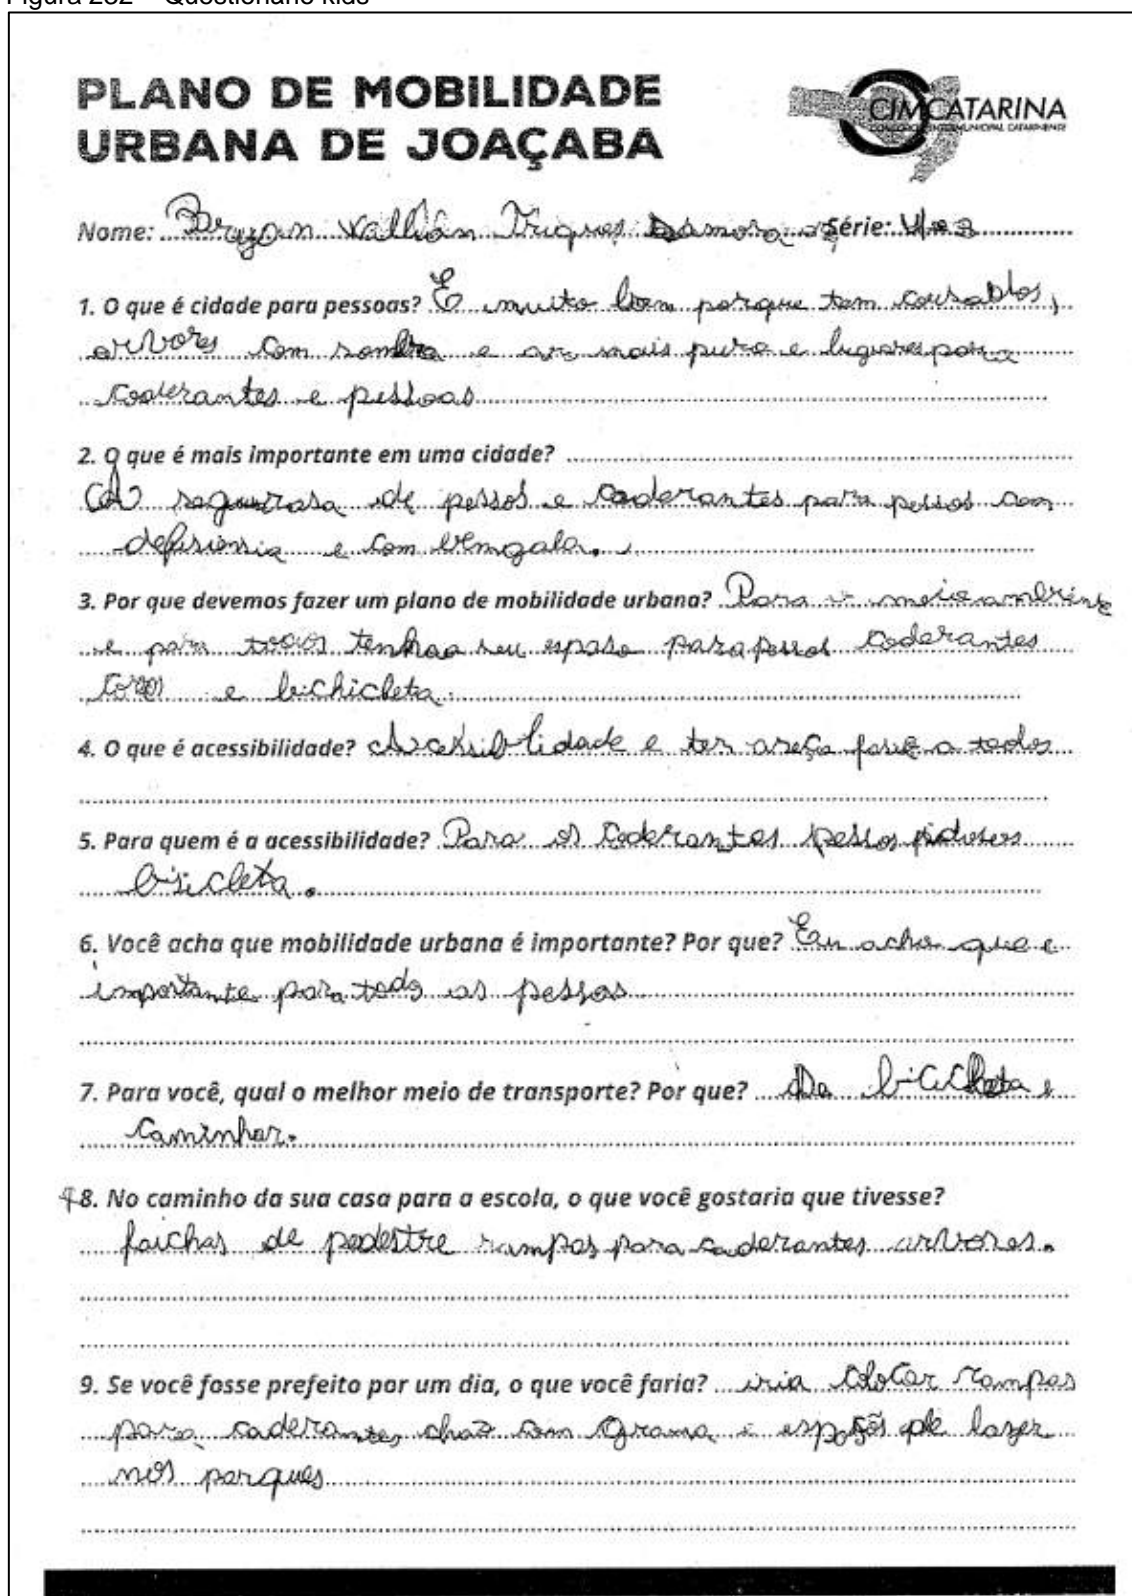 Figura 282 – Questionário kids
PLANO DE MOBILIDADE
URBANA DE JOAÇABA
CIMCATARINA
CONSÓRCIO INTERMUNICIPAL CATARINENSE
Nome: Bryan Série:
1. O que é cidade para pessoas? É muito bom porque tem
arvores com sombra e ar mais puro e lugares para
caderantes e pessoas
2. O que é mais importante em uma cidade?
A segurasa de pessos e caderantes para pessos com
e com bemgala.
3. Por que devemos fazer um plano de mobilidade urbana? Para o meio ambiente
e para todos tenhao seu espaso para pessos caderantes
e bichicleta.
4. O que é acessibilidade? e ter a todos
5. Para quem é a acessibilidade? Para os caderantes pessos
bisicleta.
6. Você acha que mobilidade urbana é importante? Por que? Eu acho que e
importante para todo as pessoas
7. Para você, qual o melhor meio de transporte? Por que? Da bicicheta e
caminhar.
8. No caminho da sua casa para a escola, o que você gostaria que tivesse?
faichas de pedestre rampas para caderantes arvores.
9. Se você fosse prefeito por um dia, o que você faria? iria colocar rampas
para caderantes chao com grama e de lazer
nos parques